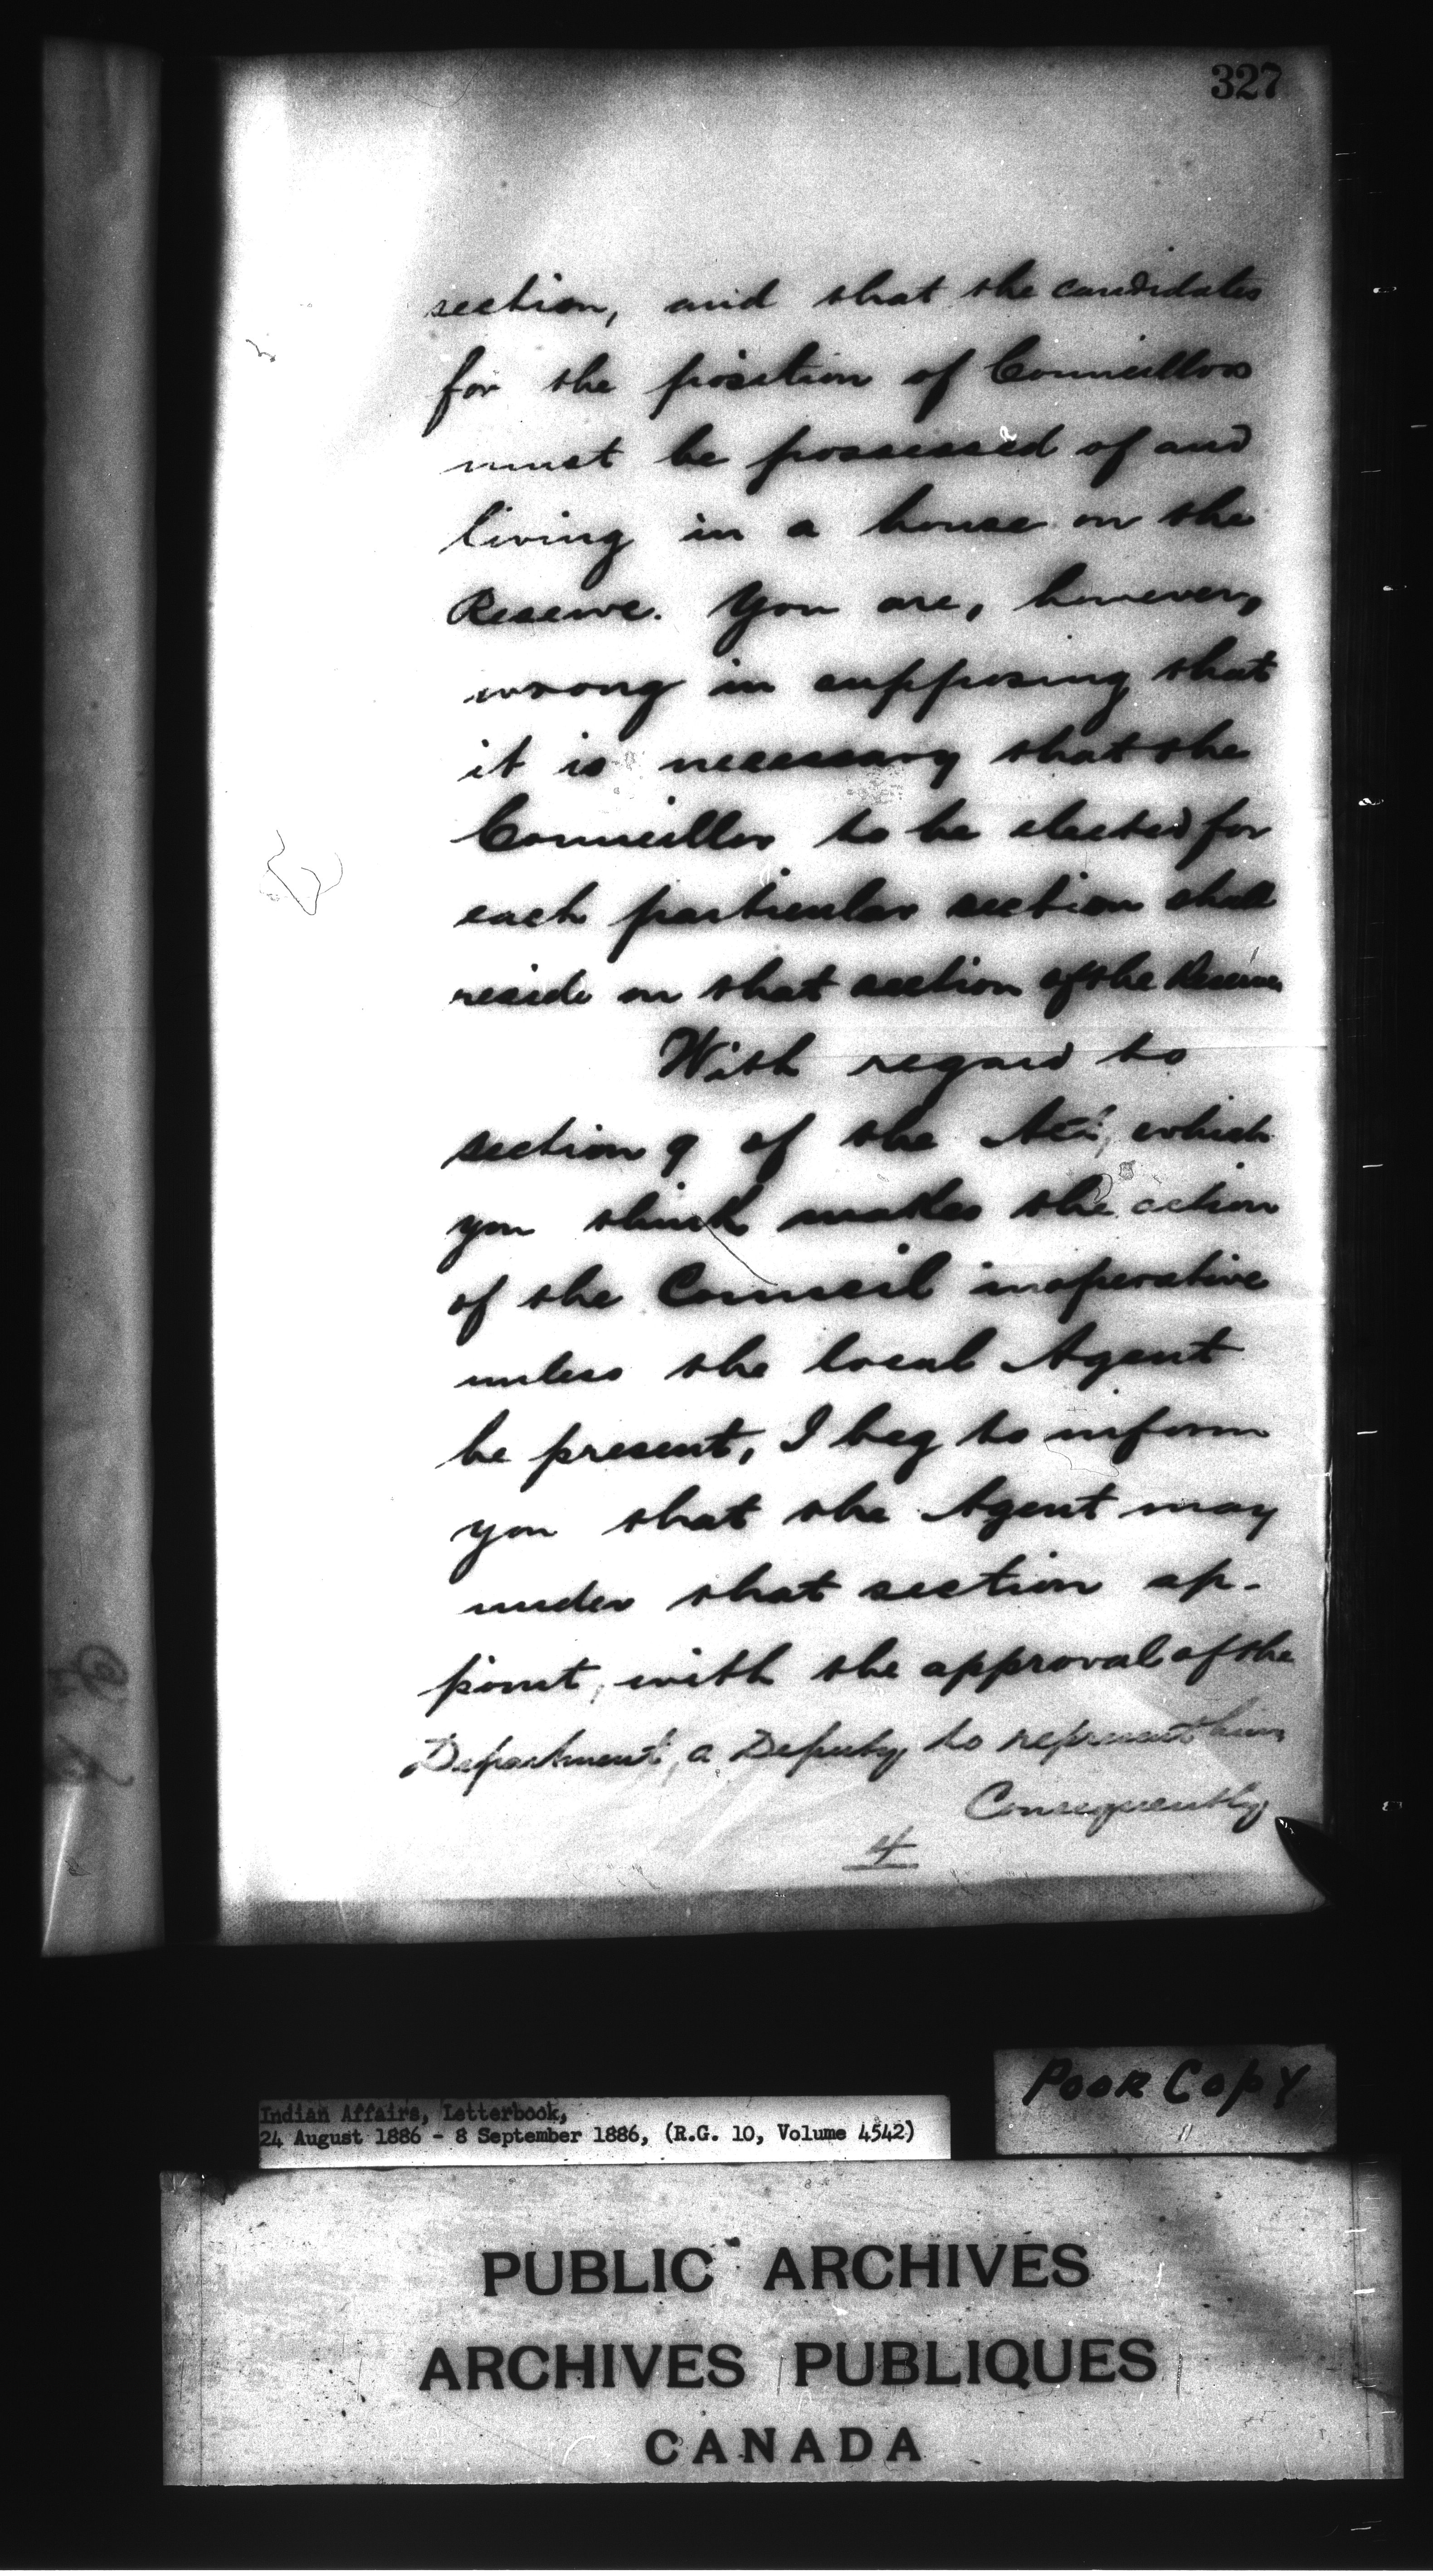 327
section, and that the candidates
for the position of Councillors
must be possessed of and
living in a house on the
Reserve. You are, however,
wrong in supposing that
it is necessary that the
Councillor to be elected for
each particular section shall
reside on that section of the Reserve
With regard to
section 9 of the Act, which
you think makes the action
of the Council inoperative
unless the local Agent
be present, I beg to inform
you that the Agent may
under that section ap-
point, with the approval of the
Department, a Deputy to represent him
Consequently
4
Poor Copy
Indian Affairs, Letterbook,
24 August 1886 - 8 September 1886, (R.G. 10, Volume 4542)
PUBLIC ARCHIVES
ARCHIVES PUBLIQUES
CANADA